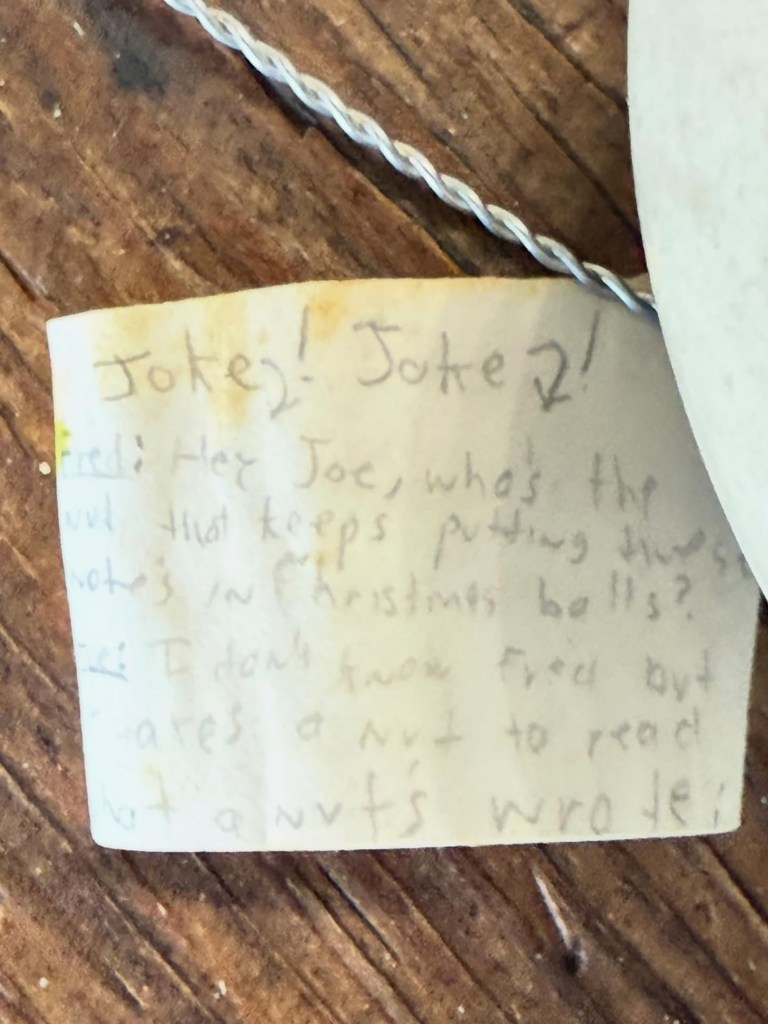 Joke! Joke!
Fred: Hey Joe, who's the
nut that keeps putting these
notes in Christmas balls?
I don't know Fred but
takes a nut to read
what a nut's wrote!